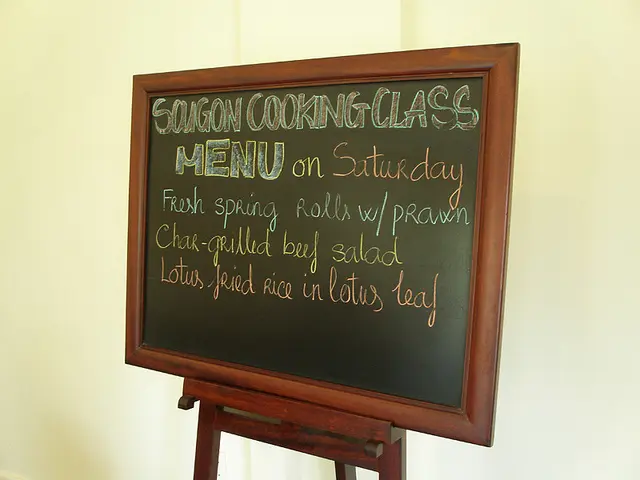 SAIGON COOKING CLASS
MENU on Saturday
Fresh spring rolls w/prawn
Char-grilled beef salad
Lotus-fried rice in lotus leaf